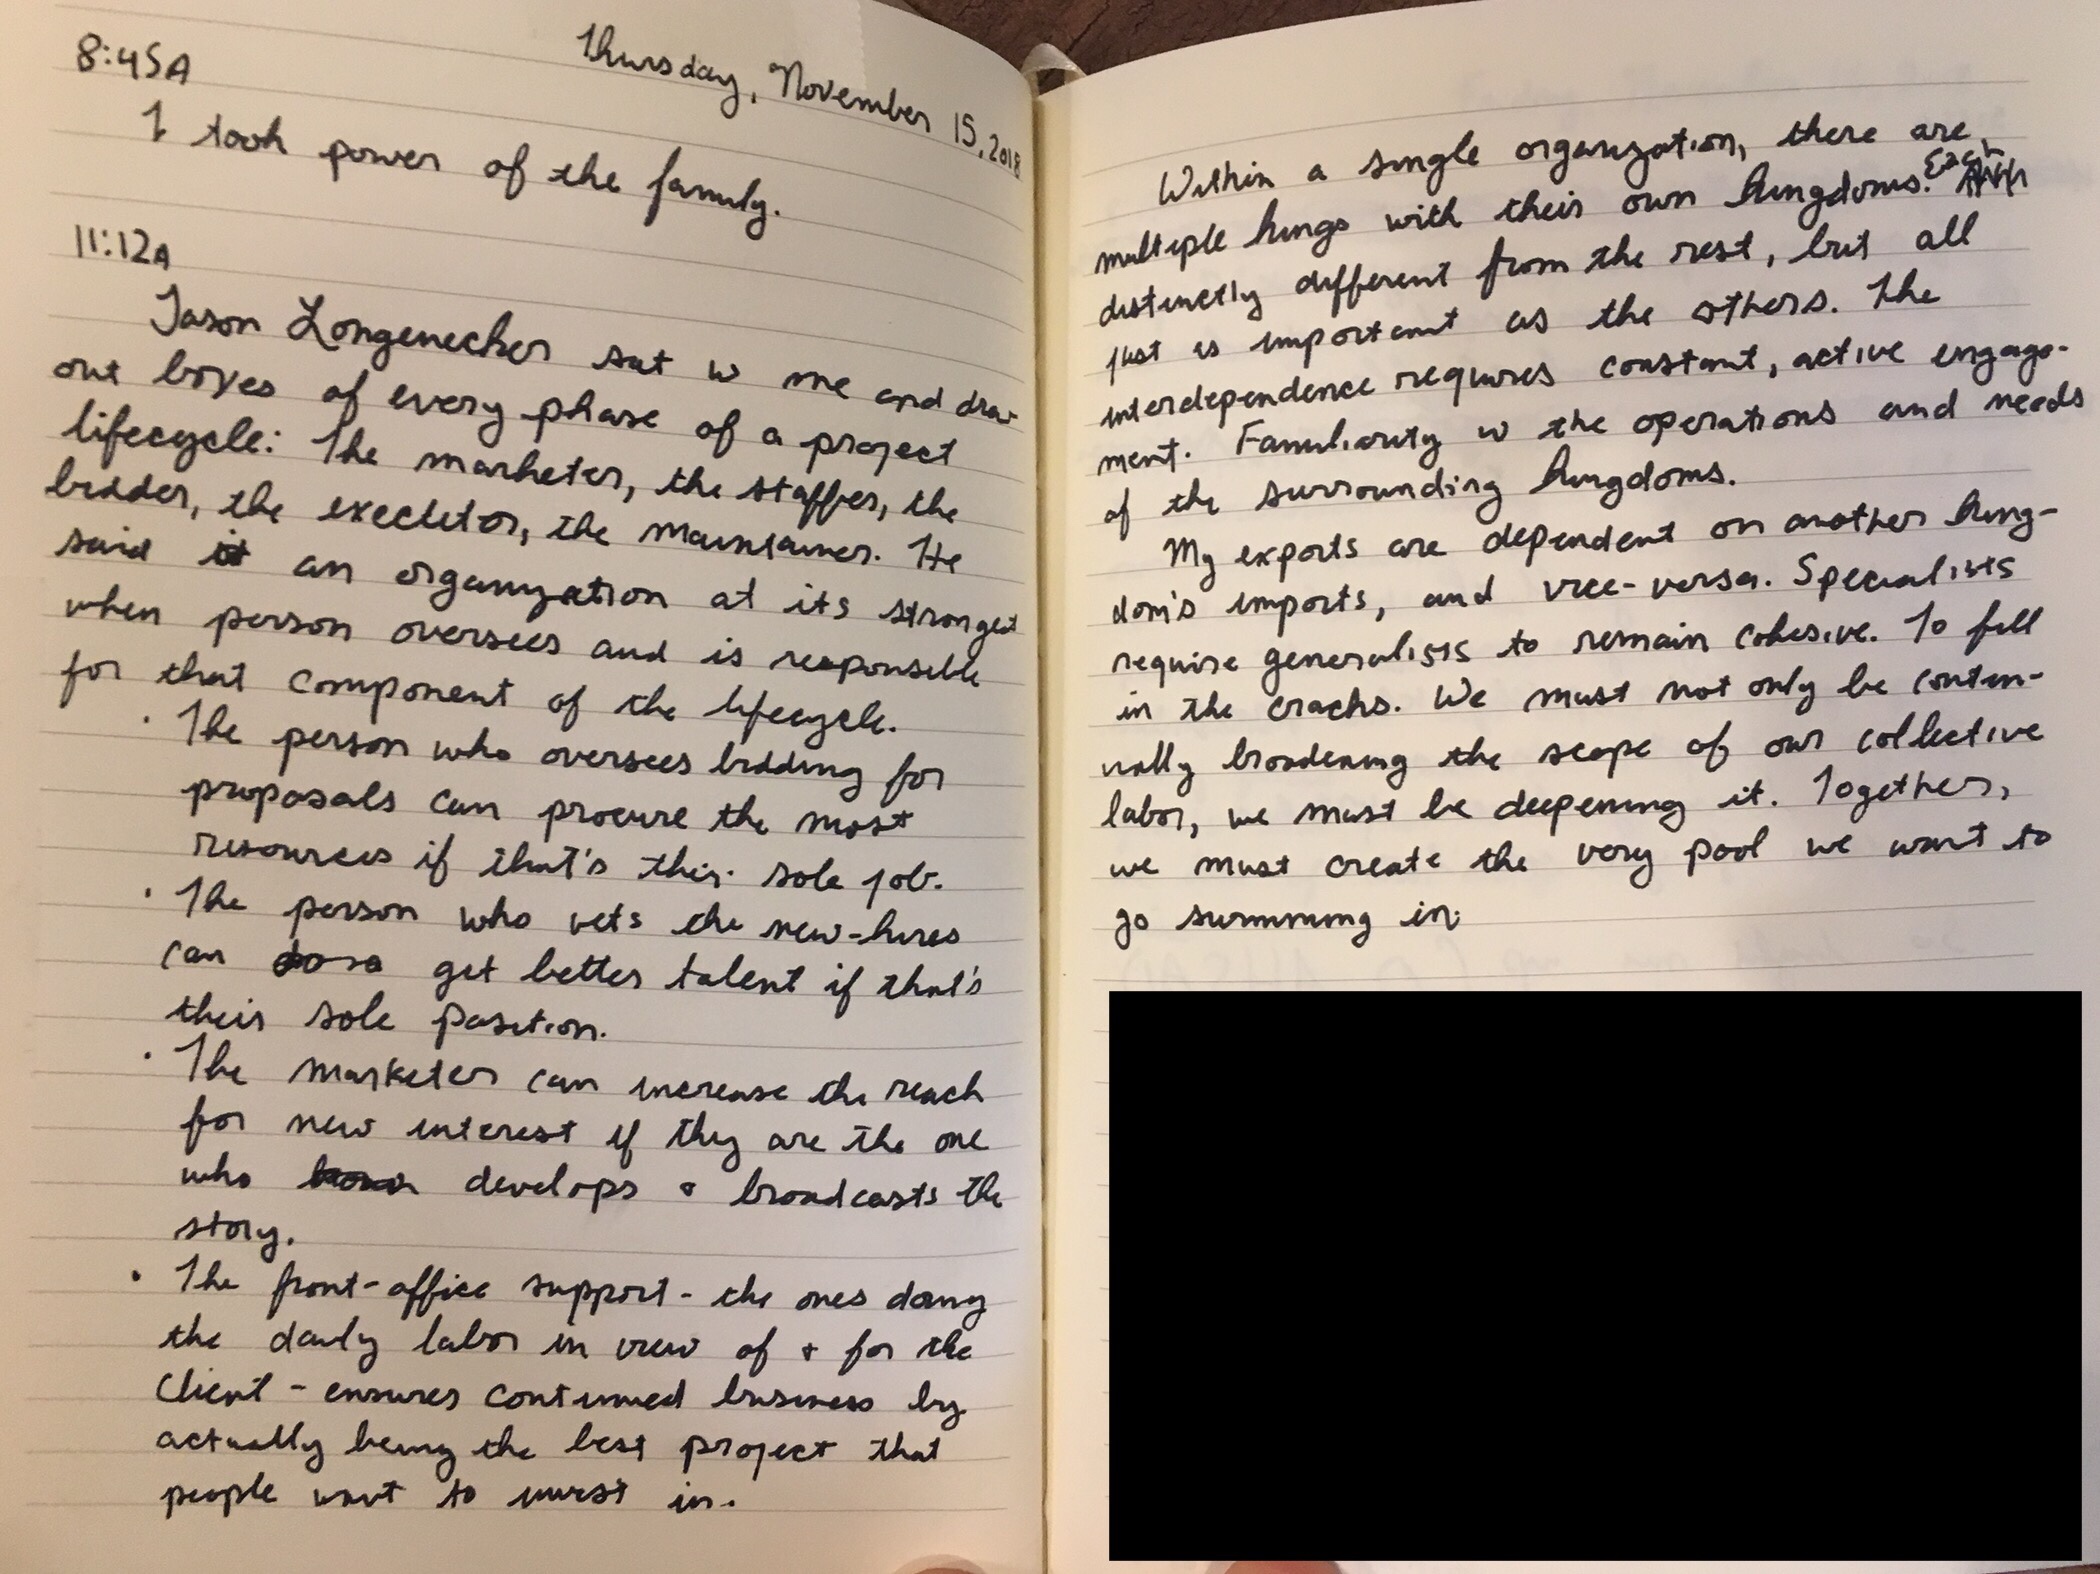 Thursday, November 15, 2018
8:45A
I took power of the family.
11:12A
Jason Longenecker sat w me and draw
out boxes of every phase of a project
lifecycle: The marketer, the staffer, the
bidder, the execletor, the maintainer. He
said an organization at its strongest
when person oversees and is responsible
for that component of the lifecycle.
· The person who oversees bidding for
proposals can procure the most
resources if that's their sole job.
· The person who vets the new-hires
can get better talent if that's
their sole position.
· The marketer can increase the reach
for new interest if they are the one
who develops + broadcasts the
story.
· The front-office support - the ones doing
the daily labor in view of + for the
client - ensures continued business by
actually being the best project that
people want to invest in.
Within a single organization, there are
multiple kings with their own kingdoms. Each
distinctly different from the rest, but all
just as important as the others. The
interdependence requires constant, active engage-
ment. Familiarity w the operations and needs
of the surrounding kingdoms.
My exports are dependent on another king-
dom's imports, and vice-versa. Specialists
require generalists to remain cohesive. To fill
in the cracks. We must not only be contin-
ually broadening the scope of our collective
labor, we must be deepening it. Together,
we must create the very pool we want to
go swimming in.